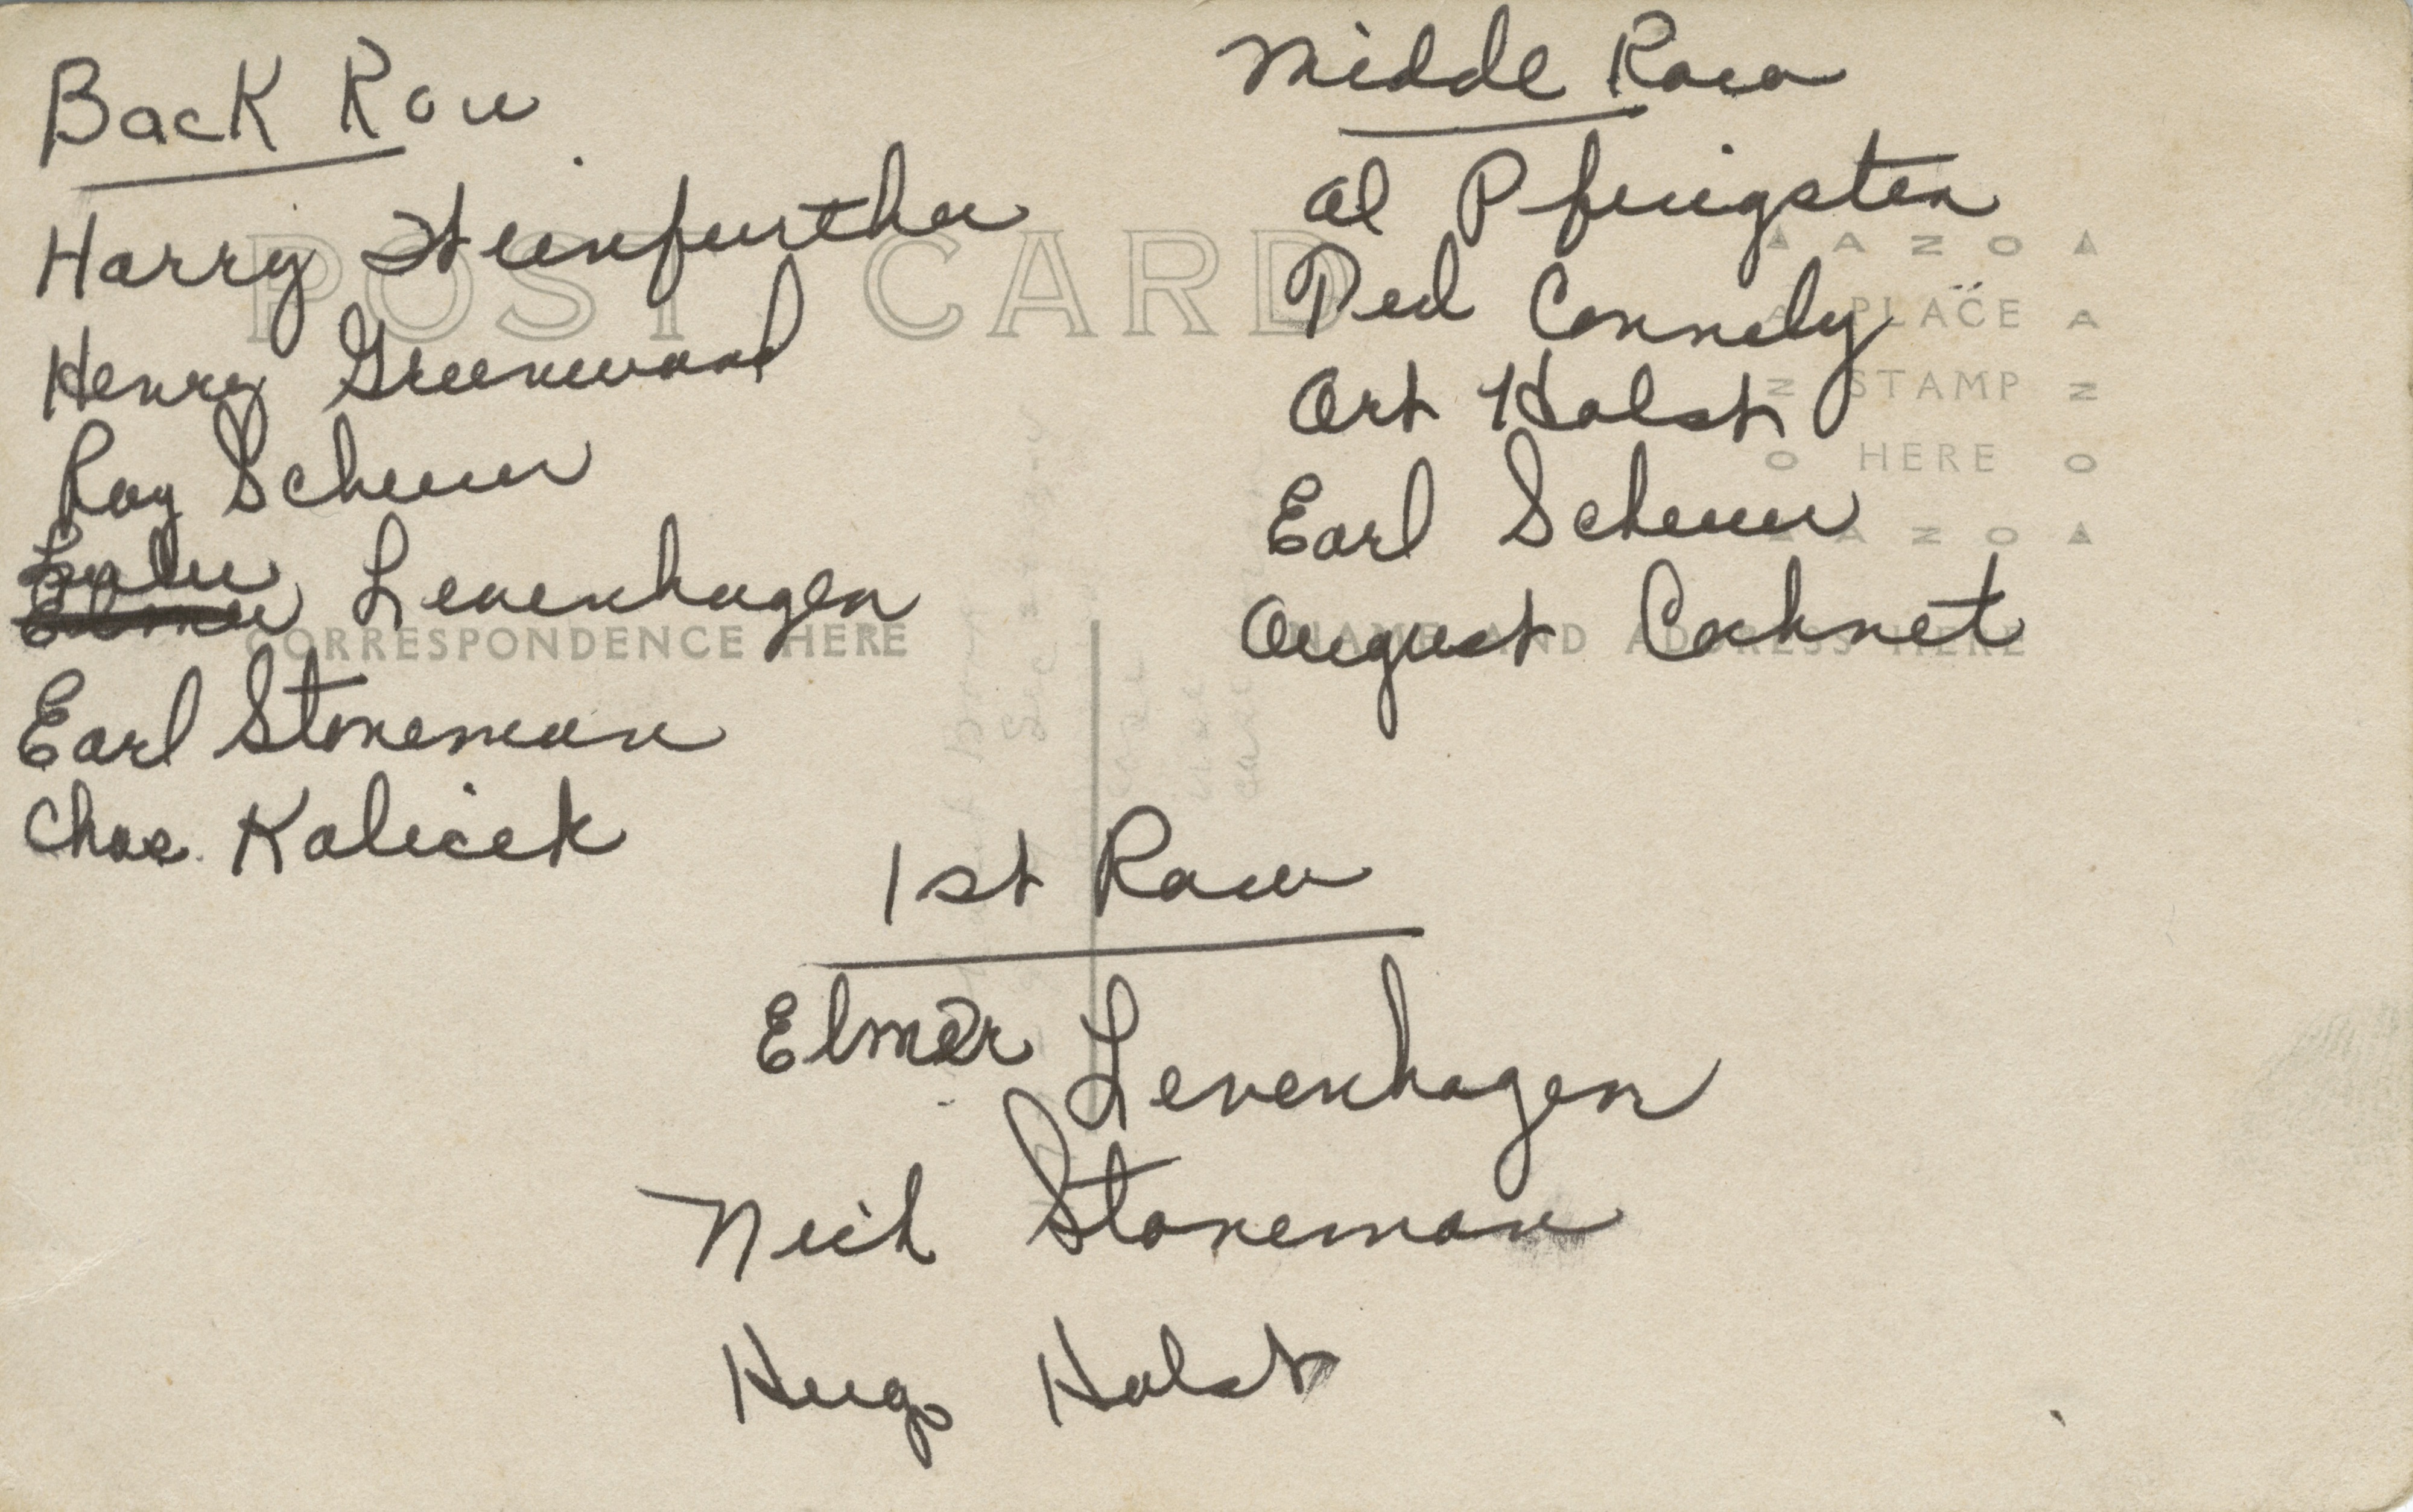 Back Row
Harry Heinfurther
Henry Greenwood
Ray Scheuer
Levenhagen
Earl Stoneman
Chas. Kalicek
Middle Row
Al Pfingsten
Ted Connely
Art Holst
Earl Scheuer
August Cocknet
1st Row
Elmer Levenhagen
Nick Stoneman
Hugo Holst
POST CARD
CORRESPONDENCE HERE
NAME AND ADDRESS HERE
AZO
PLACE
STAMP
HERE
AZO